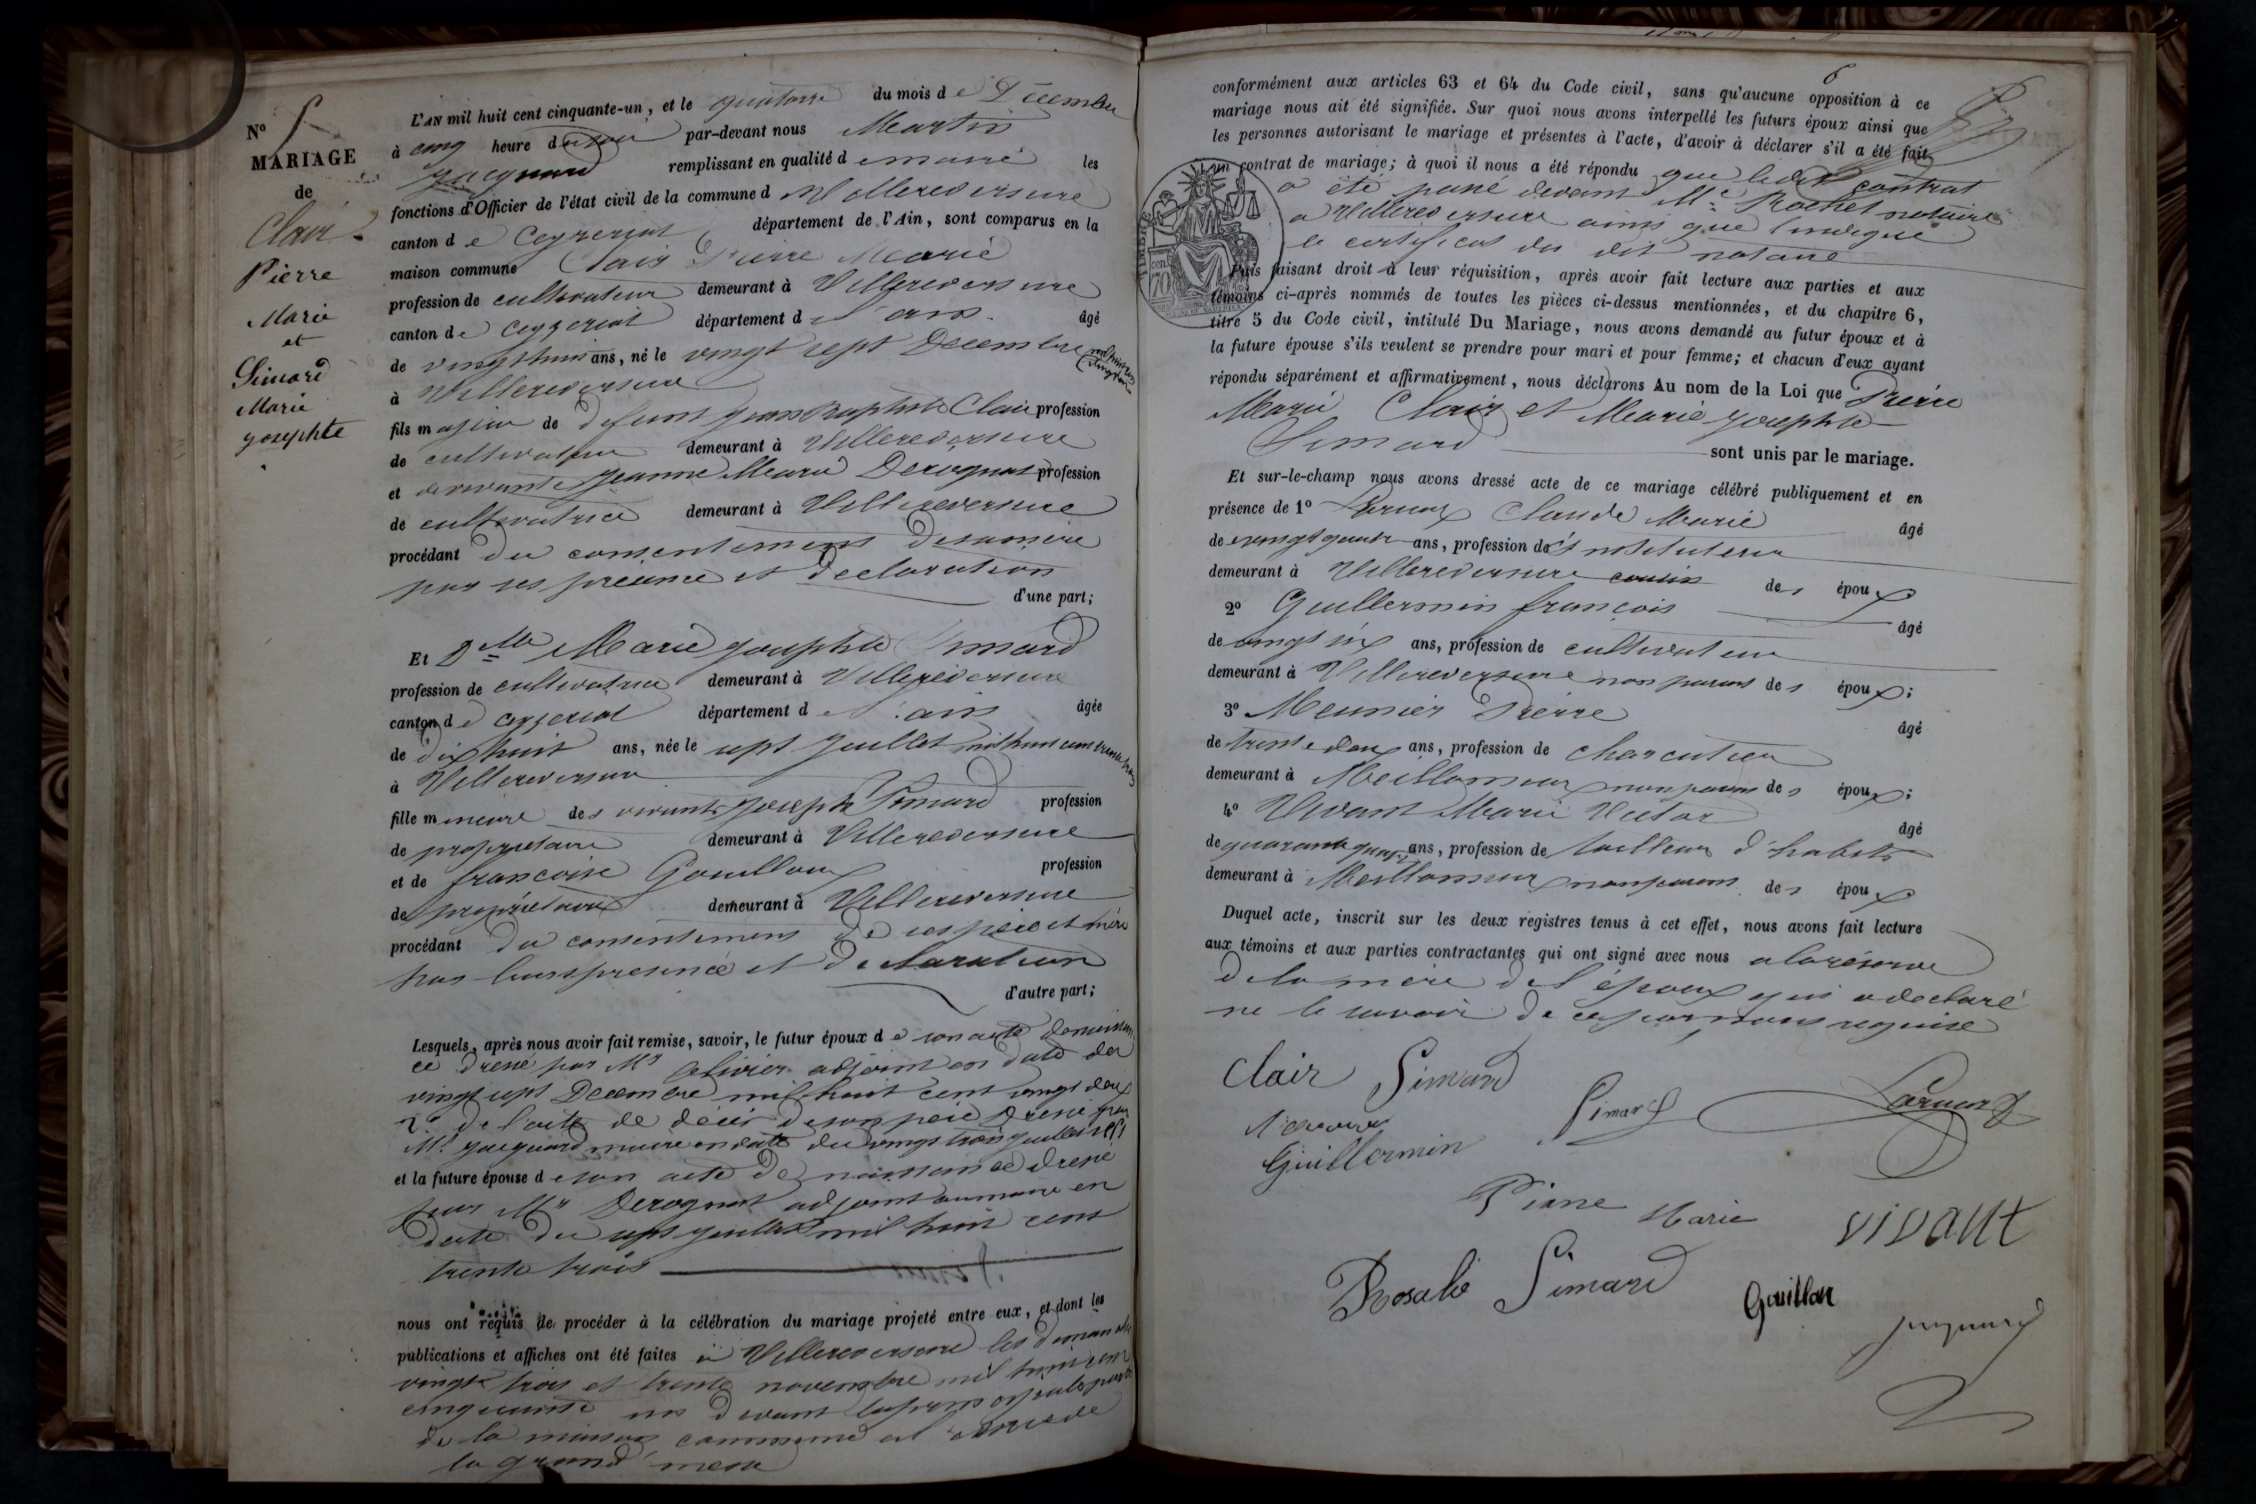 N° 5
MARIAGE
de
Clair
Pierre
Marie
et
Simard
Marie
Josephte
L'AN mil huit cent cinquante-un, et le quatorze du mois de Décembre
à cinq heure du soir par-devant nous Martin
Jacquand remplissant en qualité de maire les
fonctions d'Officier de l'état civil de la commune de Villereversure
canton de Ceyzeriat département de l'Ain, sont comparus en la
maison commune Clair Pierre Marie
profession de cultivateur demeurant à Villereversure
canton de Ceyzeriat département de l'ain âgé
de vingt huit ans, né le vingt sept Decembre mil huit cent vingt deux
à Villereversure
fils majeur de defunt Jean Baptiste Clair profession
de cultivateur demeurant à Villereversure
et de vivante Jeanne Marie Derognat profession
de cultivatrice demeurant à Villereversure
procédant du consentement de sa mère
par ses présence et declaration
d'une part;
Et Dlle Marie Josephte Simard
profession de cultivatrice demeurant à Villereversure
canton de Ceyzeriat département de l'ain âgée
de dix huit ans, née le sept Juillet mil huit cent trente trois
à Villereversure
fille mineure des vivants Joseph Simard profession
de propriétaire demeurant à Villereversure
et de francoise Gouilloux profession
de propriétaire demeurant à Villereversure
procédant du consentement de ses père et mère
par leurs presence et declaration
d'autre part;
Lesquels, après nous avoir fait remise, savoir, le futur époux de son acte de naissan
ce dressé par Mr Olivier adjoint en date du
vingt sept Decembre mil huit cent vingt deux
2° de l'acte de décès de son père dressé par
Mr Jacquand maire en date du vingt trois Juillet
et la future épouse de son acte de naissance dressé
par Mr Derognat adjoint au maire en
date du sept Juillet mil huit cent
trente trois
nous ont requis de procéder à la célébration du mariage projeté entre eux, et dont les
publications et affiches ont été faites à Villereversure les dimanche
vingt trois et trente novembre mil huit cent
cinquante un devant la principale porte
de la maison commune à l'issue de
la grand messe
6
conformément aux articles 63 et 64 du Code civil, sans qu'aucune opposition à ce
mariage nous ait été signifiée. Sur quoi nous avons interpellé les futurs époux ainsi que
les personnes autorisant le mariage et présentes à l'acte, d'avoir à déclarer s'il a été fait
un contrat de mariage; à quoi il nous a été répondu que ledit contrat
a été passé devant Me Rochet notaire
a Villereversure ainsi que l'indique
le certificat du dit notaire
TIMBRE
70
Puis faisant droit à leur réquisition, après avoir fait lecture aux parties et aux
témoins ci-après nommés de toutes les pièces ci-dessus mentionnées, et du chapitre 6,
titre 5 du Code civil, intitulé Du Mariage, nous avons demandé au futur époux et à
la future épouse s'ils veulent se prendre pour mari et pour femme; et chacun d'eux ayant
répondu séparément et affirmativement, nous déclarons Au nom de la Loi que Pierre
Marie Clair et Marie Josephte
Simard sont unis par le mariage.
Et sur-le-champ nous avons dressé acte de ce mariage célébré publiquement et en
présence de 1° Claude Marie âgé
de vingt quatre ans, profession d'instituteur
demeurant à Villereversure cousin des époux
2° Guillermin françois âgé
de vingt six ans, profession de cultivateur
demeurant à Villereversure non parent des époux;
3° Meunier Pierre âgé
de trente deux ans, profession de charcutier
demeurant à Meillonnas non parent des époux;
4° Vivant Marie Victor âgé
de quarante quatre ans, profession de tailleur d'habits
demeurant à Meillonnas non parent des époux
Duquel acte, inscrit sur les deux registres tenus à cet effet, nous avons fait lecture
aux témoins et aux parties contractantes qui ont signé avec nous a la réserve
de la mère de l'époux qui a declaré
ne le savoir de ce par nous requise
Clair Simard
Simard
Guillermin
Marie
vivant
Rosalie Simard
Gouillon
Jacquand